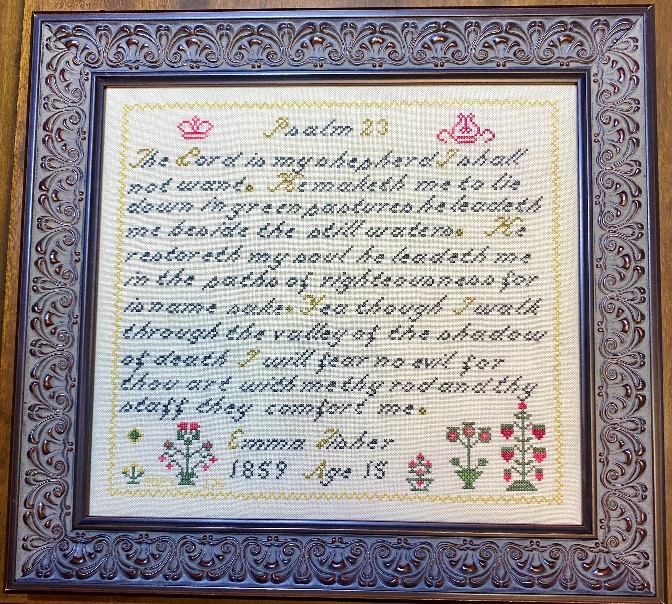 Psalm 23
The Lord is my shepherd I shall
not want. He maketh me to lie
down in green pastures he leadeth
me beside the still waters. He
restoreth my soul he leadeth me
in the paths of righteousness for
is name sake. Yea though I walk
through the valley of the shadow
of death I will fear no evil for
thou art with me thy rod and thy
staff they comfort me.
Emma Fisher
1859 Age 15